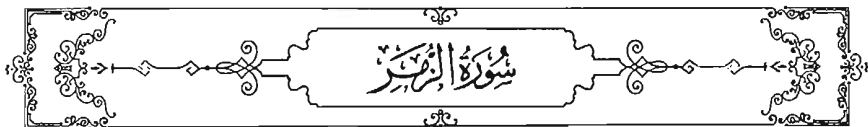 سُورَةُ الزُّمَرِ